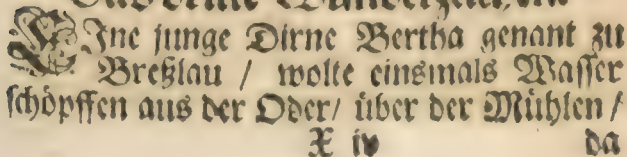 EIne junge Dirne Bertha genant zu
Breßlau / wolte einsmals Wasser
schöpffen aus der Oder / über der Mühlen /
X iv da